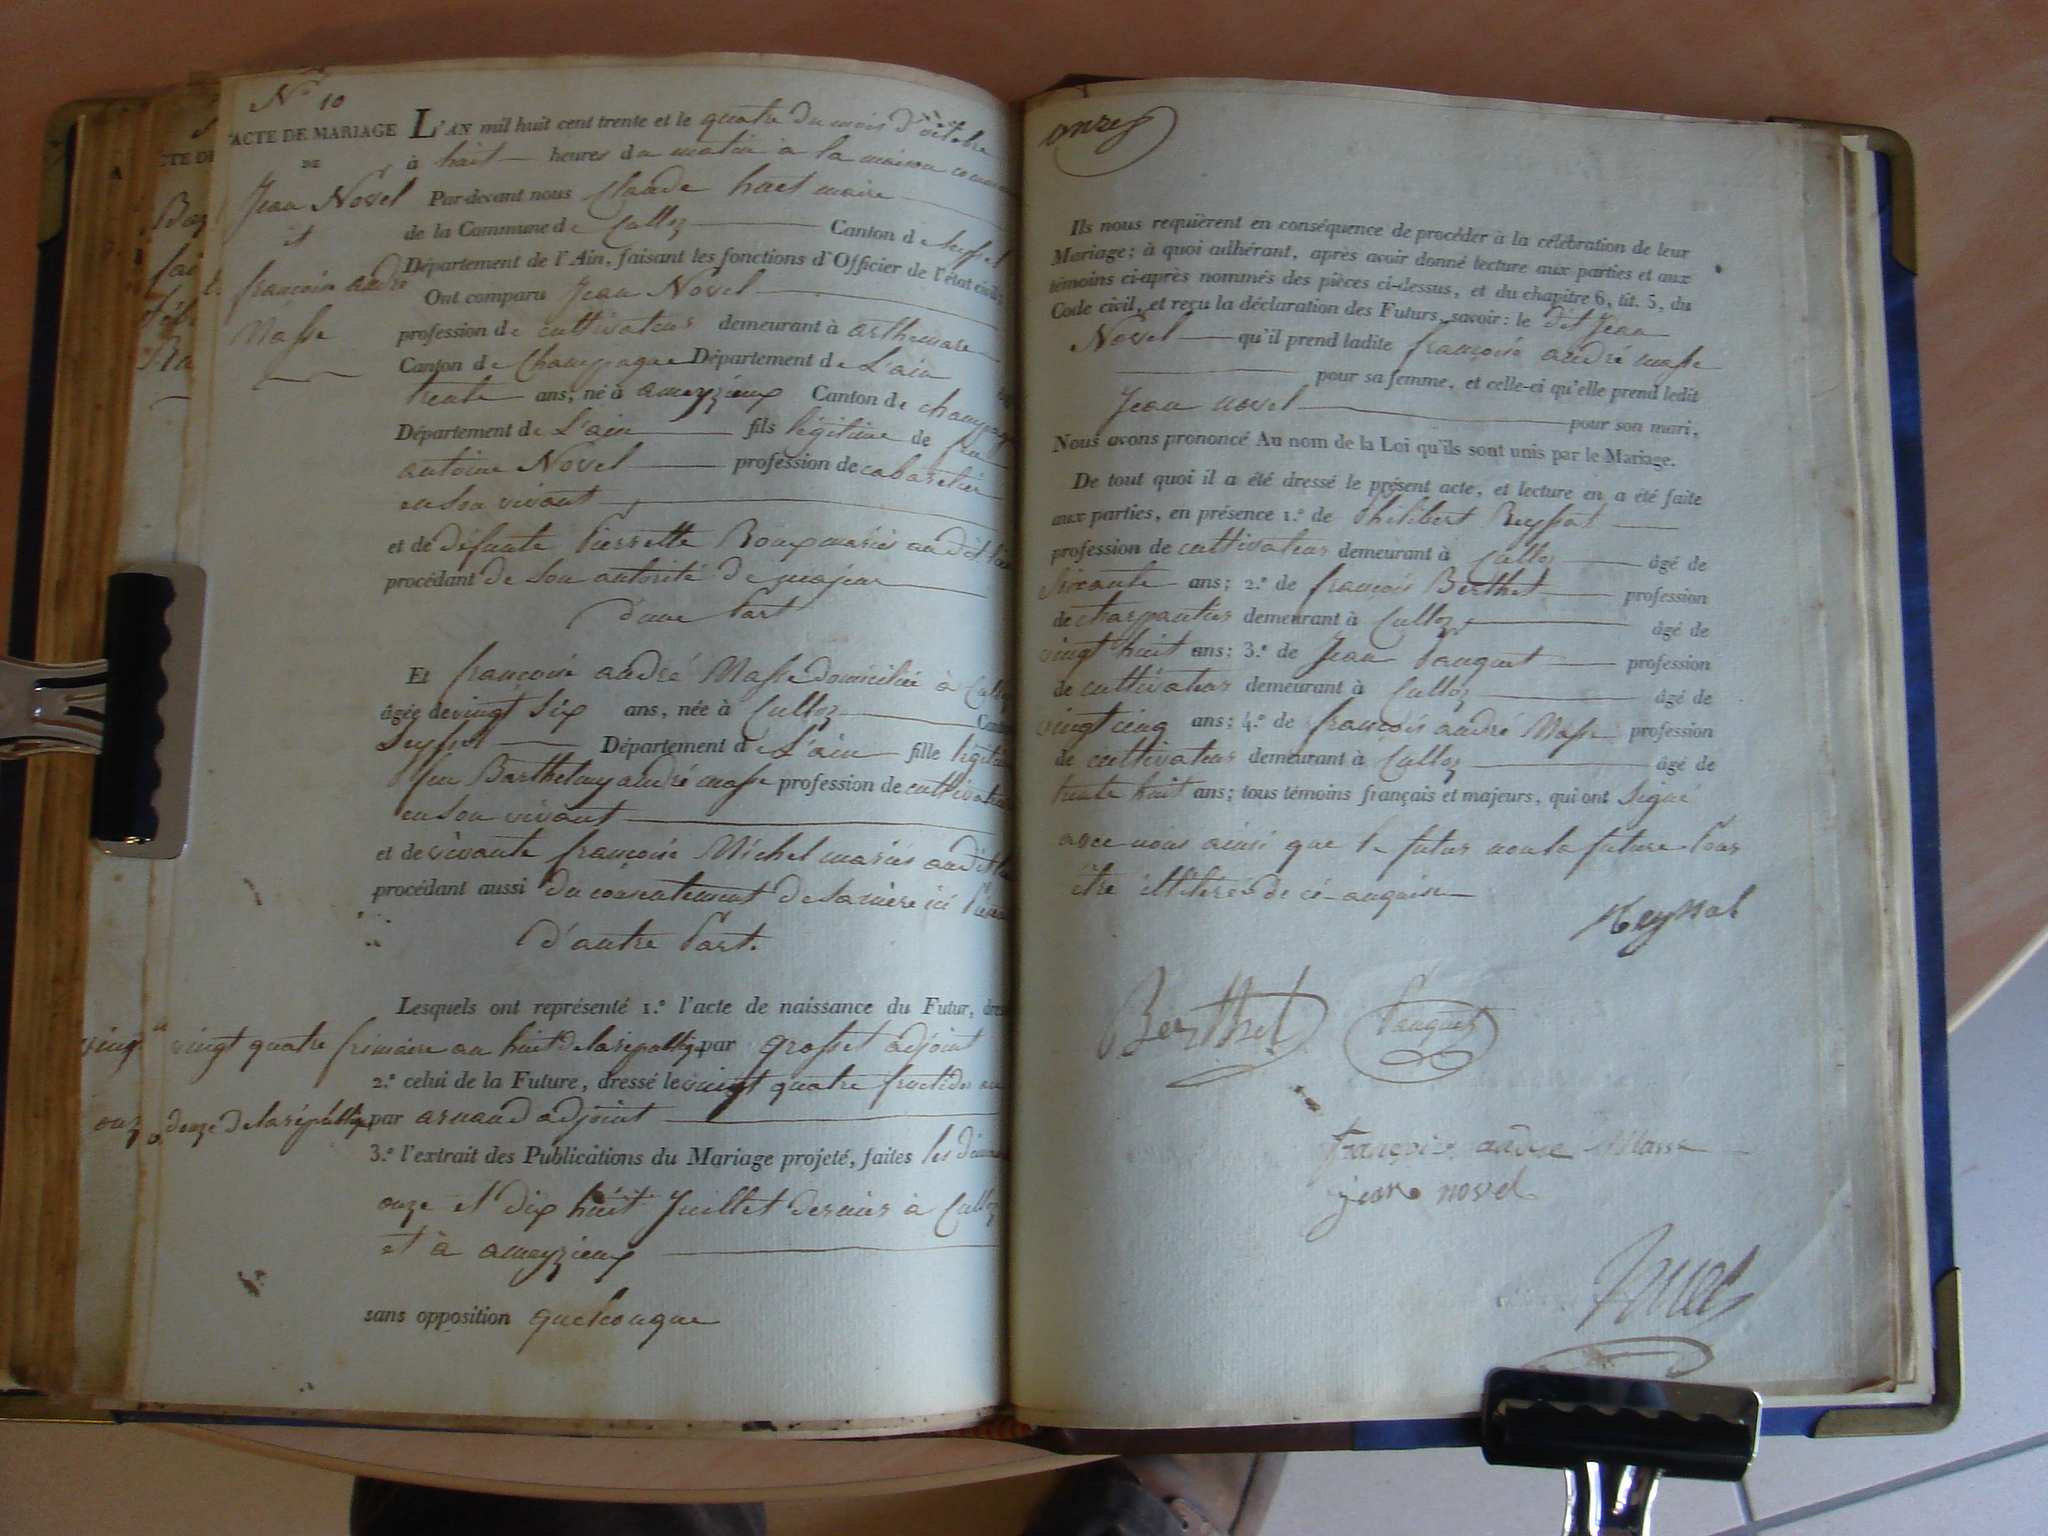 N° 10
ACTE DE MARIAGE
DE
Jean Novel
et
françoise andré
Masse
L'AN mil huit cent trente et le quatre du mois d'octobre
à huit heures du matin à la maison commune
Par-devant nous Claude huet maire
de la Commune de Culloz Canton de Seyssel
Département de l'Ain, faisant les fonctions d'Officier de l'état civil
Ont comparu Jean Novel
profession de cultivateur demeurant à arthemare
Canton de Champagne Département de L'ain
trente ans, né à ameyzieux Canton de champagne
Département de L'ain fils légitime de feu
antoine Novel profession de cabaretier
en son vivant
et de défunte Pierrette Roux mariés audit lieu
procédant de son autorité de majeur
d'une Part
Et françoise andré Masse domiciliée à Culloz
âgée de vingt six ans, née à Culloz Canton
Seyssel Département de L'ain fille légitime
feu Barthelmy andré masse profession de cultivateur
en son vivant
et de vivante françoise Michel mariés audit lieu
procédant aussi du consentement de sa mère ici
d'autre Part.
Lesquels ont représenté 1.° l'acte de naissance du Futur, dressé
vingt quatre frimaire an huit de la républiq par grosset adjoint
2.° celui de la Future, dressé le vingt quatre fructidor an
douze de la républiq par arnaud adjoint
3.° l'extrait des Publications du Mariage projeté, faites les dimanches
onze et dix huit Juillet dernier à Culloz
et à ameyzieux
sans opposition quelconque
onze
Ils nous requièrent en conséquence de procéder à la célébration de leur
Mariage; à quoi adhérant, après avoir donné lecture aux parties et aux
témoins ci-après nommés des pièces ci-dessus, et du chapitre 6, tit. 5, du
Code civil, et reçu la déclaration des Futurs, savoir: le dit Jean
Novel qu'il prend ladite françoise andré masse
pour sa femme, et celle-ci qu'elle prend ledit
Jean novel pour son mari,
Nous avons prononcé Au nom de la Loi qu'ils sont unis par le Mariage.
De tout quoi il a été dressé le présent acte, et lecture en a été faite
aux parties, en présence 1.° de Philibert Reyssat
profession de cultivateur demeurant à Culloz âgé de
soixante ans; 2.° de françois Berthet profession
de charpentier demeurant à Culloz âgé de
vingt huit ans; 3.° de Jean Pauquet profession
de cultivateur demeurant à Culloz âgé de
vingt cinq ans; 4.° de françois andré Masse profession
de cultivateur demeurant à Culloz âgé de
trente huit ans; tous témoins français et majeurs, qui ont signé
avec nous ainsi que le futur non la future Pour
être illitérée de ce enquise
Reyssat
Berthet Pauquet
françois andre Masse
jean novel
huet